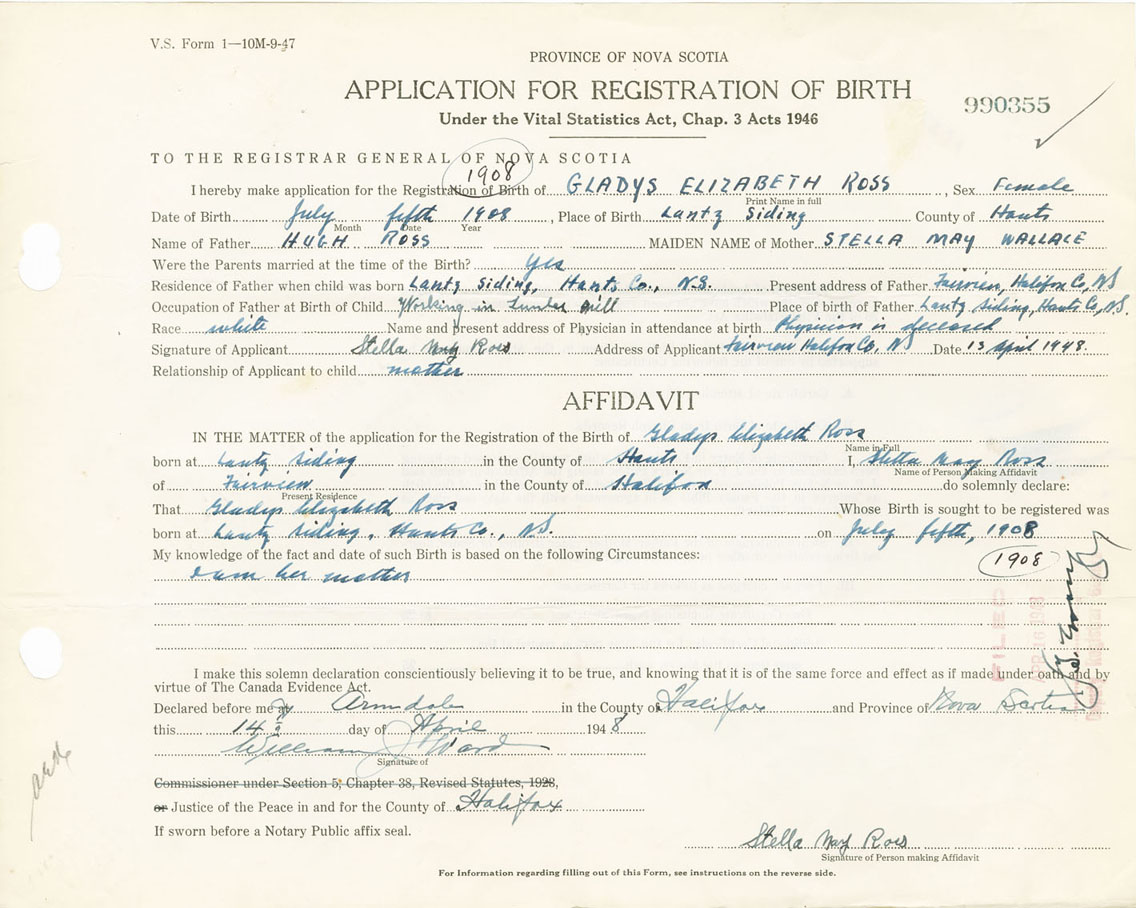 V.S. Form 1—10M-9-47
PROVINCE OF NOVA SCOTIA
APPLICATION FOR REGISTRATION OF BIRTH
990355
Under the Vital Statistics Act, Chap. 3 Acts 1946
TO THE REGISTRAR GENERAL OF NOVA SCOTIA
1908
I hereby make application for the Registration of Birth of GLADYS ELIZABETH ROSS, Sex Female
Print Name in full
Date of Birth July fifth 1908, Place of Birth Lantz Siding County of Hants
Month Date Year
Name of Father HUGH ROSS MAIDEN NAME of Mother STELLA MAY WALLACE
Were the Parents married at the time of the Birth? Yes
Residence of Father when child was born Lantz Siding, Hants Co., N.S. Present address of Father Fairview, Halifax Co, NS
Occupation of Father at Birth of Child Working in Lumber Mill Place of birth of Father Lantz Siding, Hants Co, N.S.
Race white Name and present address of Physician in attendance at birth Physician is deceased
Signature of Applicant Stella May Ross Address of Applicant Fairview Halifax Co, NS Date 13 April 1948.
Relationship of Applicant to child mother
AFFIDAVIT
IN THE MATTER of the application for the Registration of the Birth of Gladys Elizabeth Ross
Name in Full
born at Lantz Siding in the County of Hants I, Stella May Ross
Name of Person Making Affidavit
of Fairview in the County of Halifax do solemnly declare:
Present Residence
That Gladys Elizabeth Ross Whose Birth is sought to be registered was
born at Lantz Siding, Hants Co., N.S. on July fifth, 1908
My knowledge of the fact and date of such Birth is based on the following Circumstances:
1908
I am her mother
FILED
I make this solemn declaration conscientiously believing it to be true, and knowing that it is of the same force and effect as if made under oath and by
virtue of The Canada Evidence Act.
Declared before me at Armdale in the County of Halifax and Province of Nova Scotia
this 14th day of April 1948
William J Ward
Signature of
Commissioner under Section 5, Chapter 38, Revised Statutes, 1923,
or Justice of the Peace in and for the County of Halifax
If sworn before a Notary Public affix seal.
Stella May Ross
Signature of Person making Affidavit
For Information regarding filling out of this Form, see instructions on the reverse side.